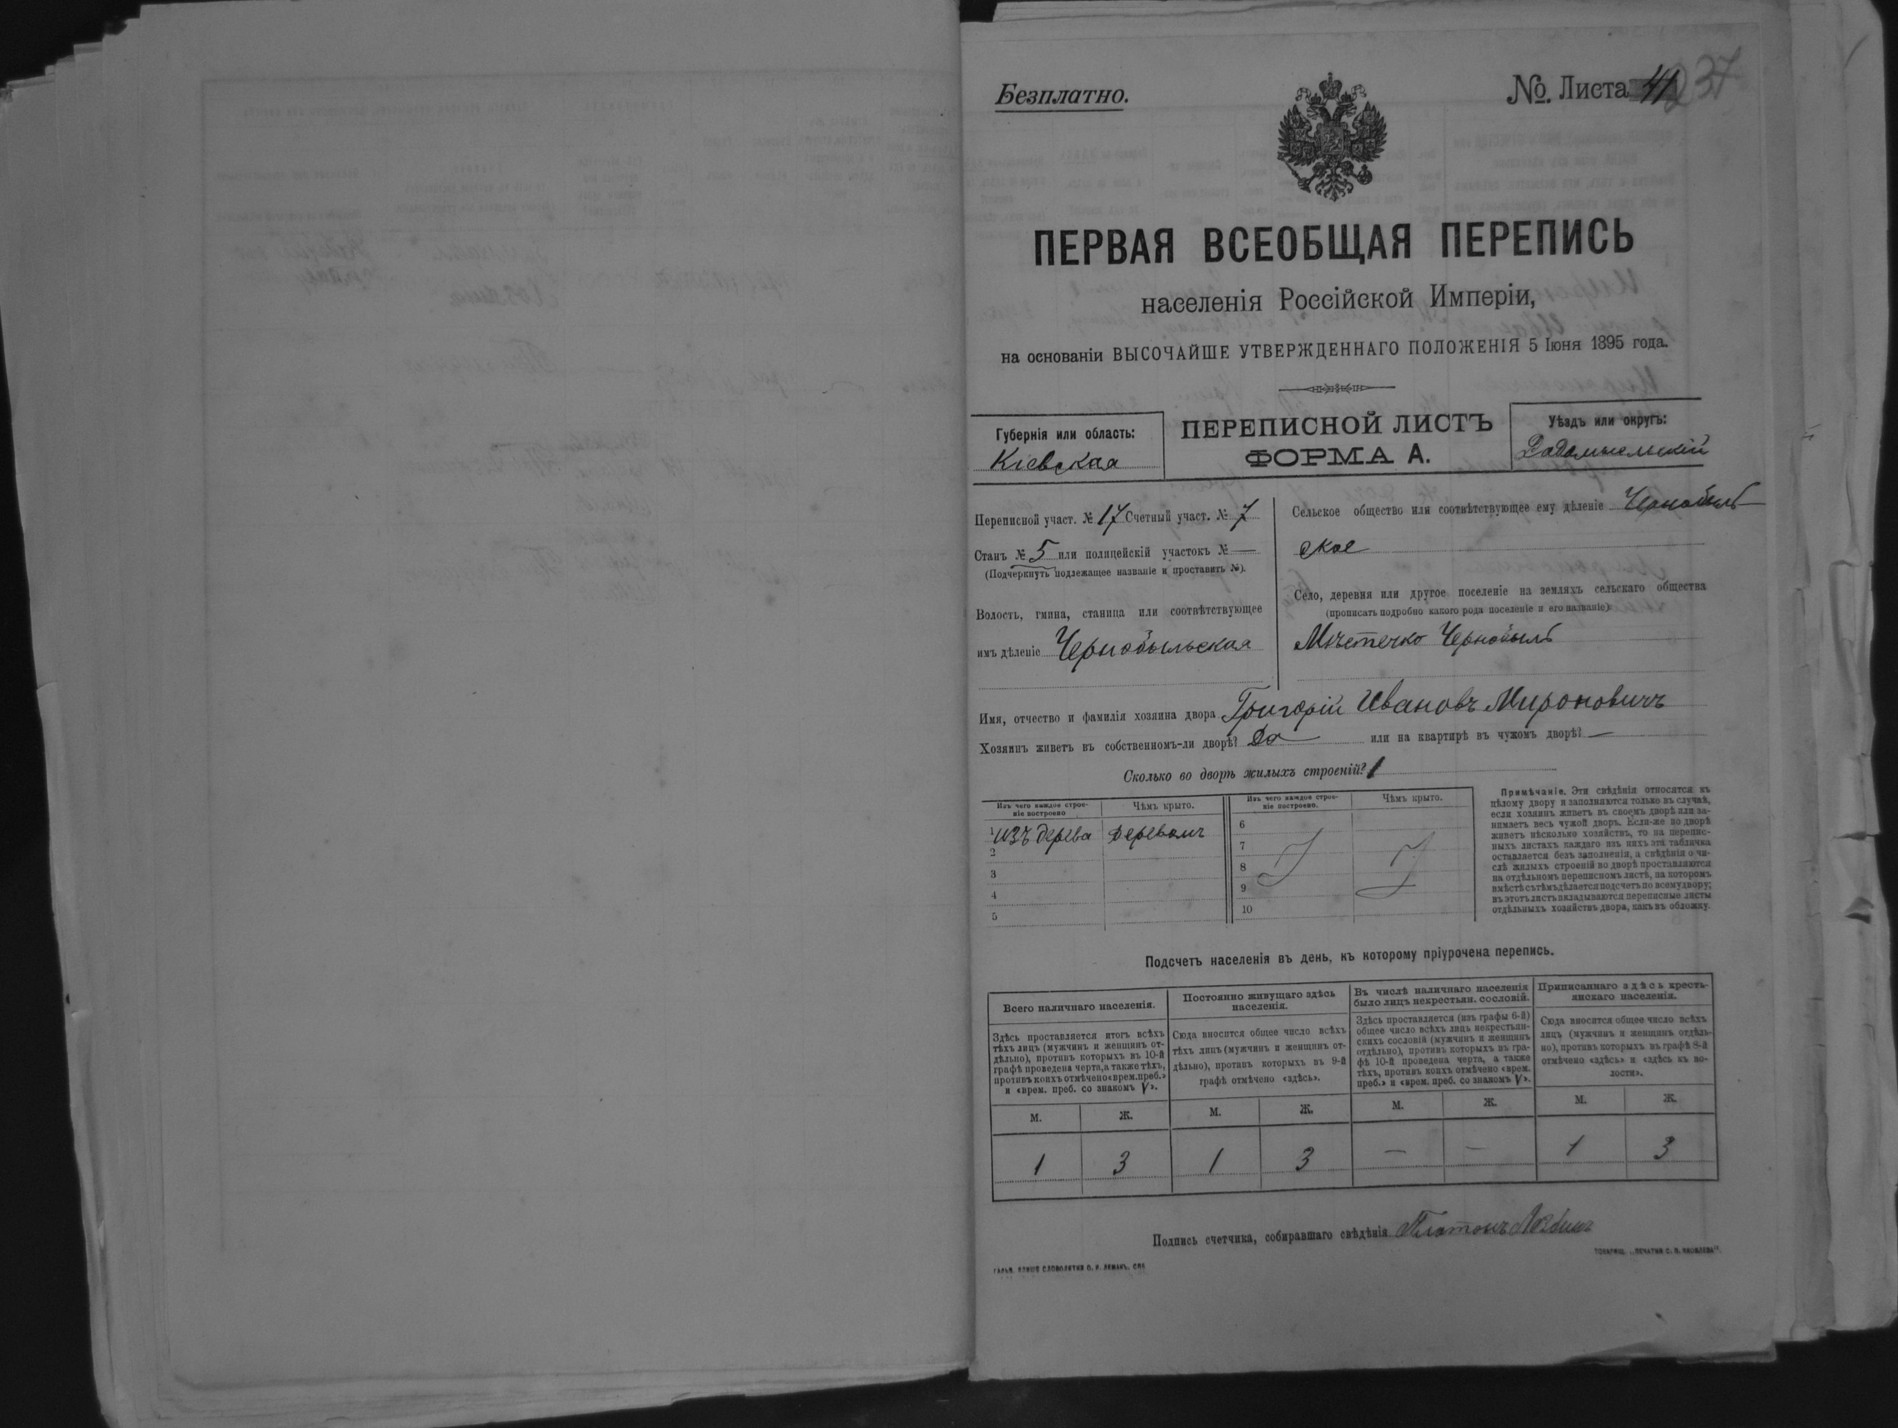 Безплатно.
№. Листа 41 237
ПЕРВАЯ ВСЕОБЩАЯ ПЕРЕПИСЬ
населенія Россійской Имперіи,
на основаніи ВЫСОЧАЙШЕ УТВЕРЖДЕННАГО ПОЛОЖЕНІЯ 5 Іюня 1895 года.
Губернія или область:
Кіевская
ПЕРЕПИСНОЙ ЛИСТЪ
ФОРМА А.
Уѣздъ или округъ:
Радомысльскій
Переписной участ. № 17 Счетный участ. № 7
Станъ № 5 или полицейскій участокъ № —
(Подчеркнуть подлежащее названіе и проставить №).
Волость, гмина, станица или соотвѣтствующее
имъ дѣленіе Чернобыльская
Сельское общество или соотвѣтствующее ему дѣленіе Чернобыль
ское
Село, деревня или другое поселеніе на земляхъ сельскаго общества
(прописать подробно какого рода поселеніе и его названіе)
Мѣстечко Чернобыль
Имя, отчество и фамилія хозяина двора Григорій Ивановъ Мироновичъ
Хозяинъ живетъ въ собственномъ-ли дворѣ? Да или на квартирѣ въ чужомъ дворѣ? —
Сколько во дворѣ жилыхъ строеній? 1
Изъ чего каждое строе-
ніе построено
Чѣмъ крыто.
Изъ чего каждое строе-
ніе построено.
Чѣмъ крыто.
1 изъ дерева деревомъ
2
3
4
5
6
7
8
9
10
Примѣчаніе. Эти свѣдѣнія относятся къ
цѣлому двору и заполняются только въ случаѣ,
если хозяинъ живетъ въ своемъ дворѣ или за-
нимаетъ весь чужой дворъ. Если-же во дворѣ
живетъ нѣсколько хозяйствъ, то на перепис-
ныхъ листахъ каждаго изъ нихъ эта табличка
оставляется безъ заполненія, а свѣдѣнія о чи-
слѣ жилыхъ строеній во дворѣ проставляются
на отдѣльномъ переписномъ листѣ, на которомъ
вмѣстѣ съ тѣмъ дѣлается подсчетъ по всему двору;
въ этотъ листъ вкладываются переписные листы
отдѣльныхъ хозяйствъ двора, какъ въ обложку.
Подсчетъ населенія въ день, къ которому пріурочена перепись.
Всего наличнаго населенія.
Здѣсь проставляется итогъ всѣхъ
тѣхъ лицъ (мужчинъ и женщинъ от-
дѣльно), противъ которыхъ въ 10-й
графѣ проведена черта, а также тѣхъ,
противъ коихъ отмѣчено «врем. преб.»
и «врем. преб. со знакомъ V».
Постоянно живущаго здѣсь
населенія.
Сюда вносится общее число всѣхъ
тѣхъ лицъ (мужчинъ и женщинъ от-
дѣльно), противъ которыхъ въ 9-й
графѣ отмѣчено «здѣсь».
Въ числѣ наличнаго населенія
было лицъ некрестьян. сословій.
Здѣсь проставляется (изъ графы 6-й)
общее число всѣхъ лицъ некрестьян-
скихъ сословій (мужчинъ и женщинъ
отдѣльно), противъ которыхъ въ гра-
фѣ 10-й проведена черта, а также
тѣхъ, противъ коихъ отмѣчено «врем.
преб.» и «врем. преб. со знакомъ V».
Приписаннаго здѣсь кресть-
янскаго населенія.
Сюда вносится общее число всѣхъ
лицъ (мужчинъ и женщинъ отдѣль-
но), противъ которыхъ въ графѣ 8-й
отмѣчено «здѣсь» и «здѣсь къ во-
лости».
М. Ж. М. Ж. М. Ж. М. Ж.
1 3 1 3 — — 1 3
Подпись счетчика, собиравшаго свѣдѣнія Платонъ